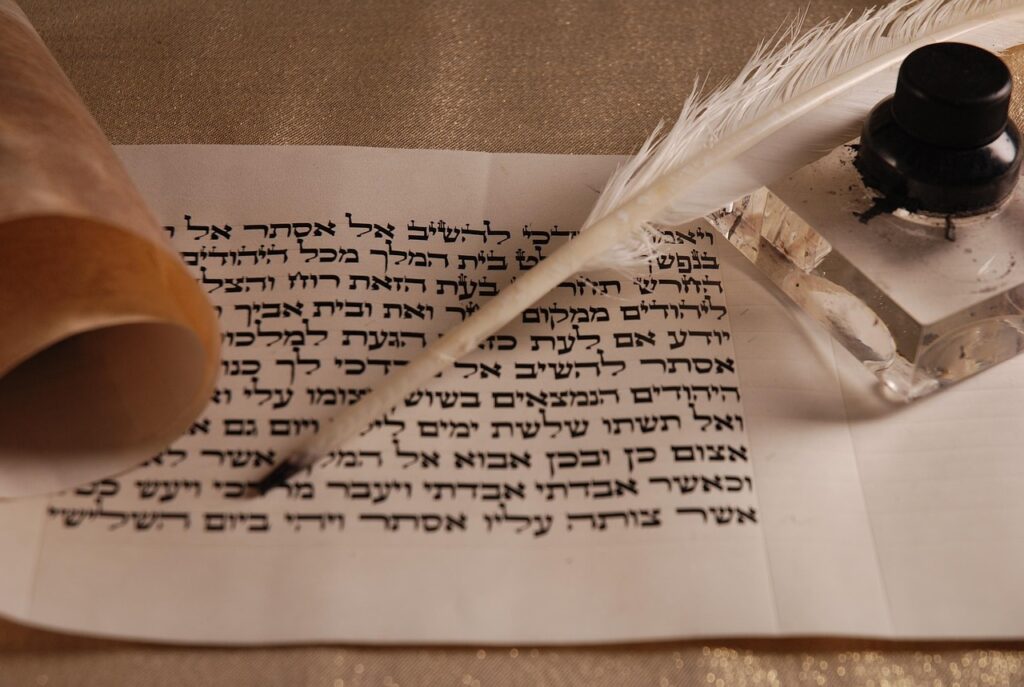 להשיב אל אסתר אל
בית המלך מכל היהודים
החרש בעת הזאת רוח
ליהודים ממקום ואת ובית אביך
יודע אם לעת הגעת
אסתר להשיב אל לך
היהודים הנמצאים עלי
ואל תשתו שלשת ימים ויום גם
אצום כן ובכן אבוא אל אשר
וכאשר אבדתי אבדתי ויעבר ויעש
אשר צותה עליו אסתר ויהי ביום השלישי